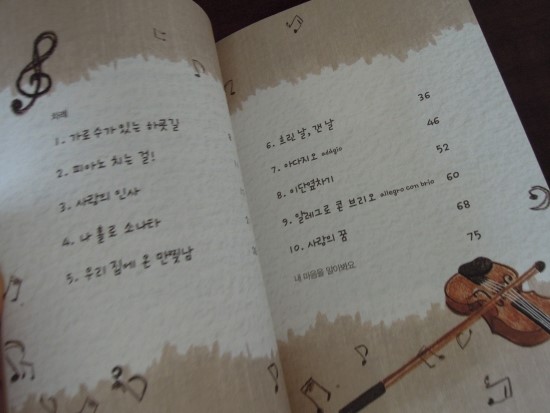 차례
1. 가로수가 있는 하굣길
2. 피아노 치는 걸!
3. 사랑의 인사
4. 나 홀로 소나타
5. 우리 집에 온 만찢남
6. 흐린 날, 갠 날 36
7. 아다지오 adágio 46
8. 이단옆차기 52
9. 알레그로 콘 브리오 allegro con brio 60
10. 사랑의 꿈 68
내 마음을 알아봐요 75